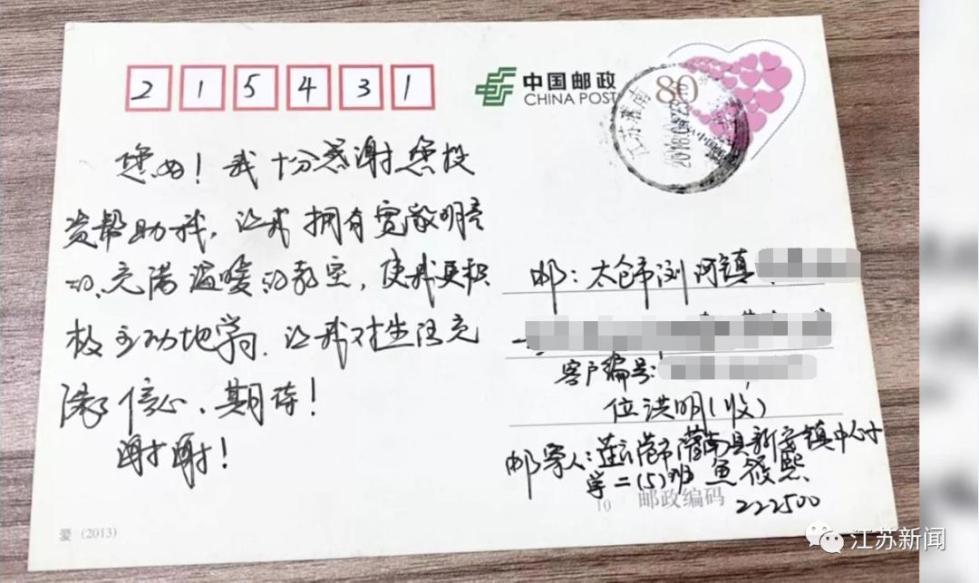 215431
中国邮政
CHINA POST
80分
江苏灌南
您好！我十分感谢您投
资帮助我，让我拥有宽敞明亮
的、充满温暖的教室，使我更积
极主动地学习。让我对生活充
满了信心、期待！
谢谢！
邮：太仓市浏河镇
客户编号：
位洪明（收）
邮寄人：连云港市灌南县新安镇中心小
学二（5）班 鱼筱熙
邮政编码
222500
爱 (2013)
江苏新闻